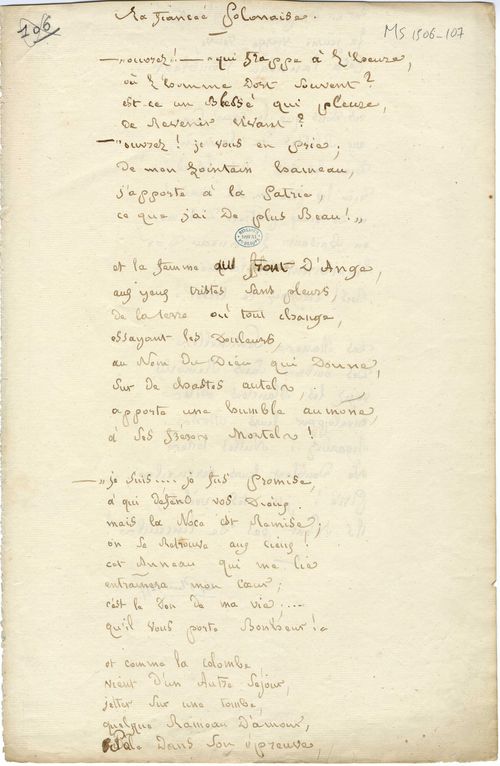 106
MS 1506-107
La fiancée Polonaise.
— "ouvrez! — "qui frappe à l'heure,
où l'homme dort souvent?
est-ce un Blessé qui pleure,
de Revenir vivant?
— "ouvrez! je vous en prie;
De mon lointain hameau,
j'apporte à la Patrie,
ce que j'ai De plus Beau!"
et la femme au front D'Ange,
aux yeux tristes sans pleurs,
de la terre où tout change,
essayant les Douleurs,
au Nom du Dieu qui Donne,
sur de chastes autels,
apporte une humble aumône,
à ses frères Mortels!
— "je suis.... je fus promise,
à qui défend vos Dieux.
mais la Noce est Remise;
on se Retrouve aux cieux!
cet Anneau qui me lie
entraînera mon cœur;
c'est le Don de ma vie;....
qu'il vous porte Bonheur!
et comme la colombe
vient D'un Autre Séjour,
jetter sur une tombe,
quelque Rameau D'amour,
Pâle Dans son épreuve,